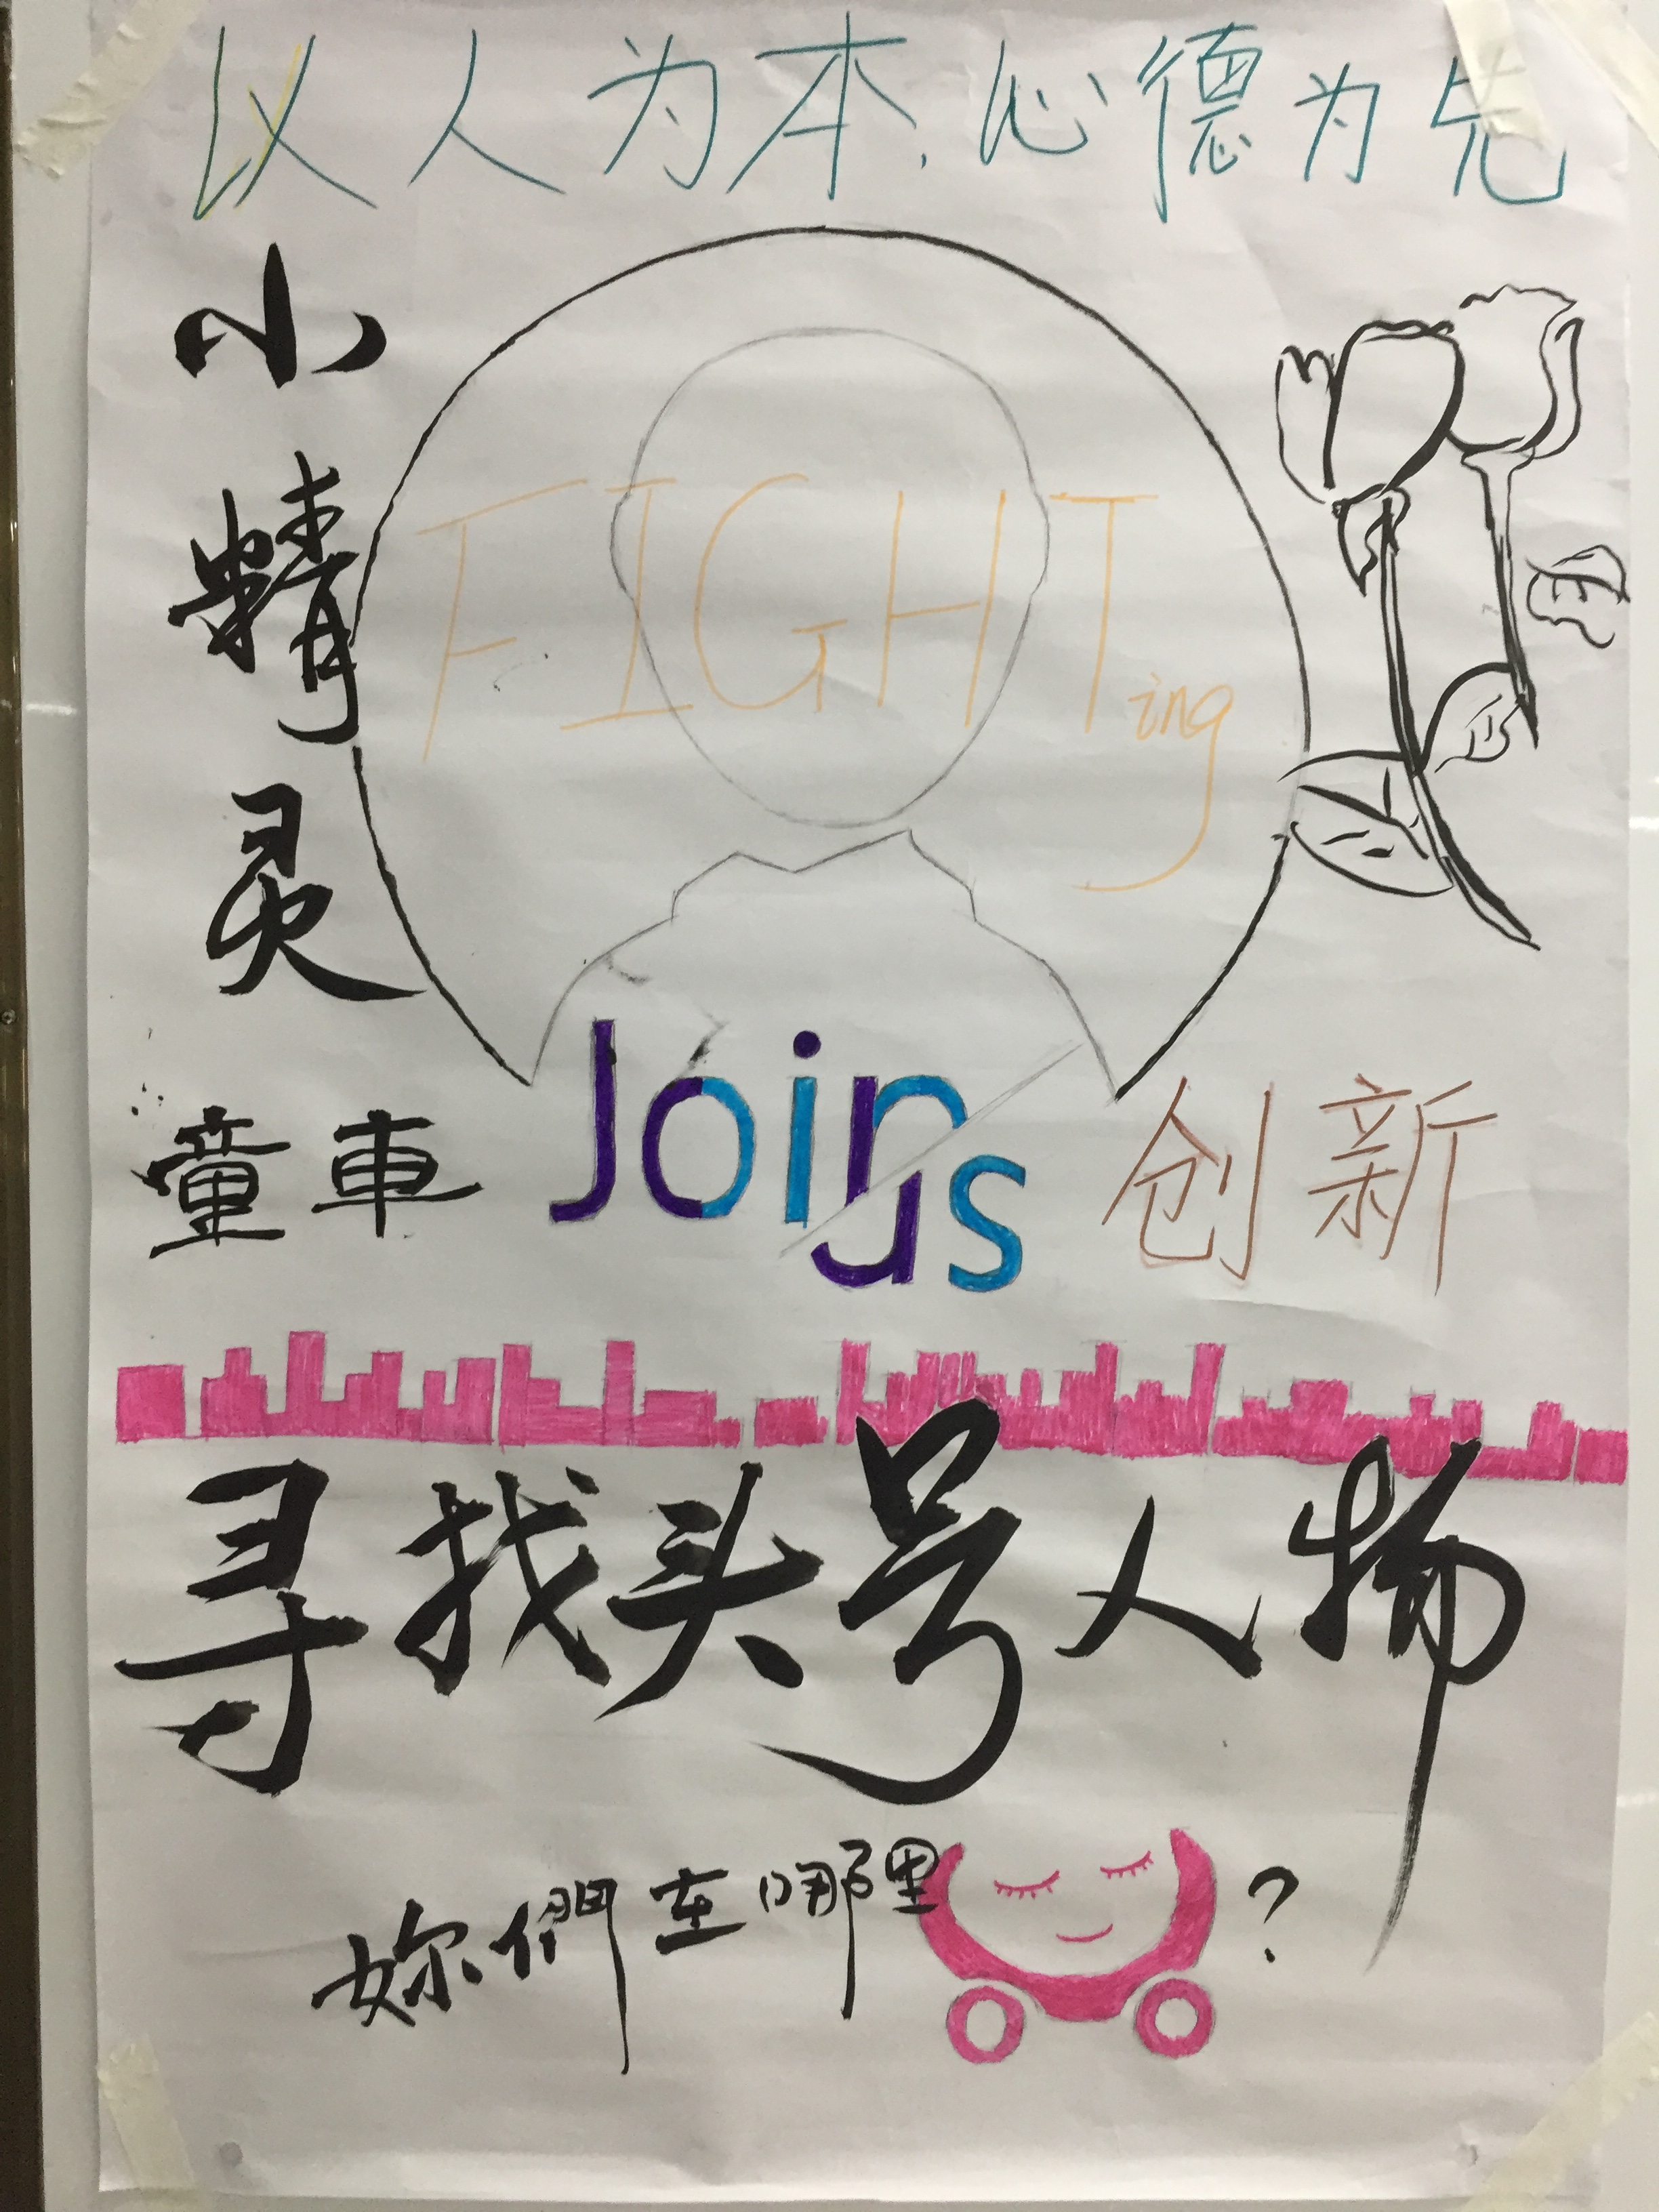 以人为本,心德为先
小精灵
FIGHTing
童車
Join us
创新
寻找头号人物
妳們在哪里?